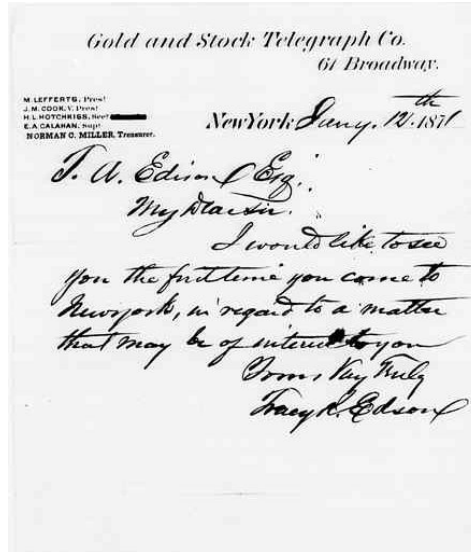 Gold and Stock Telegraph Co.
61 Broadway.
M. LEFFERTS, Prest
J. M. COOK, V. Prest
H. L. HOTCHKISS, Secy
E. A. CALAHAN, Supt
NORMAN C. MILLER, Treasurer.
New York Jany. 12th 1871
T. A. Edison Esq.
My Dear Sir.
I would like to see
you the first time you come to
Newyork, in regard to a matter
that may be of interest to you
Yours Very Truly
Tracy R. Edson